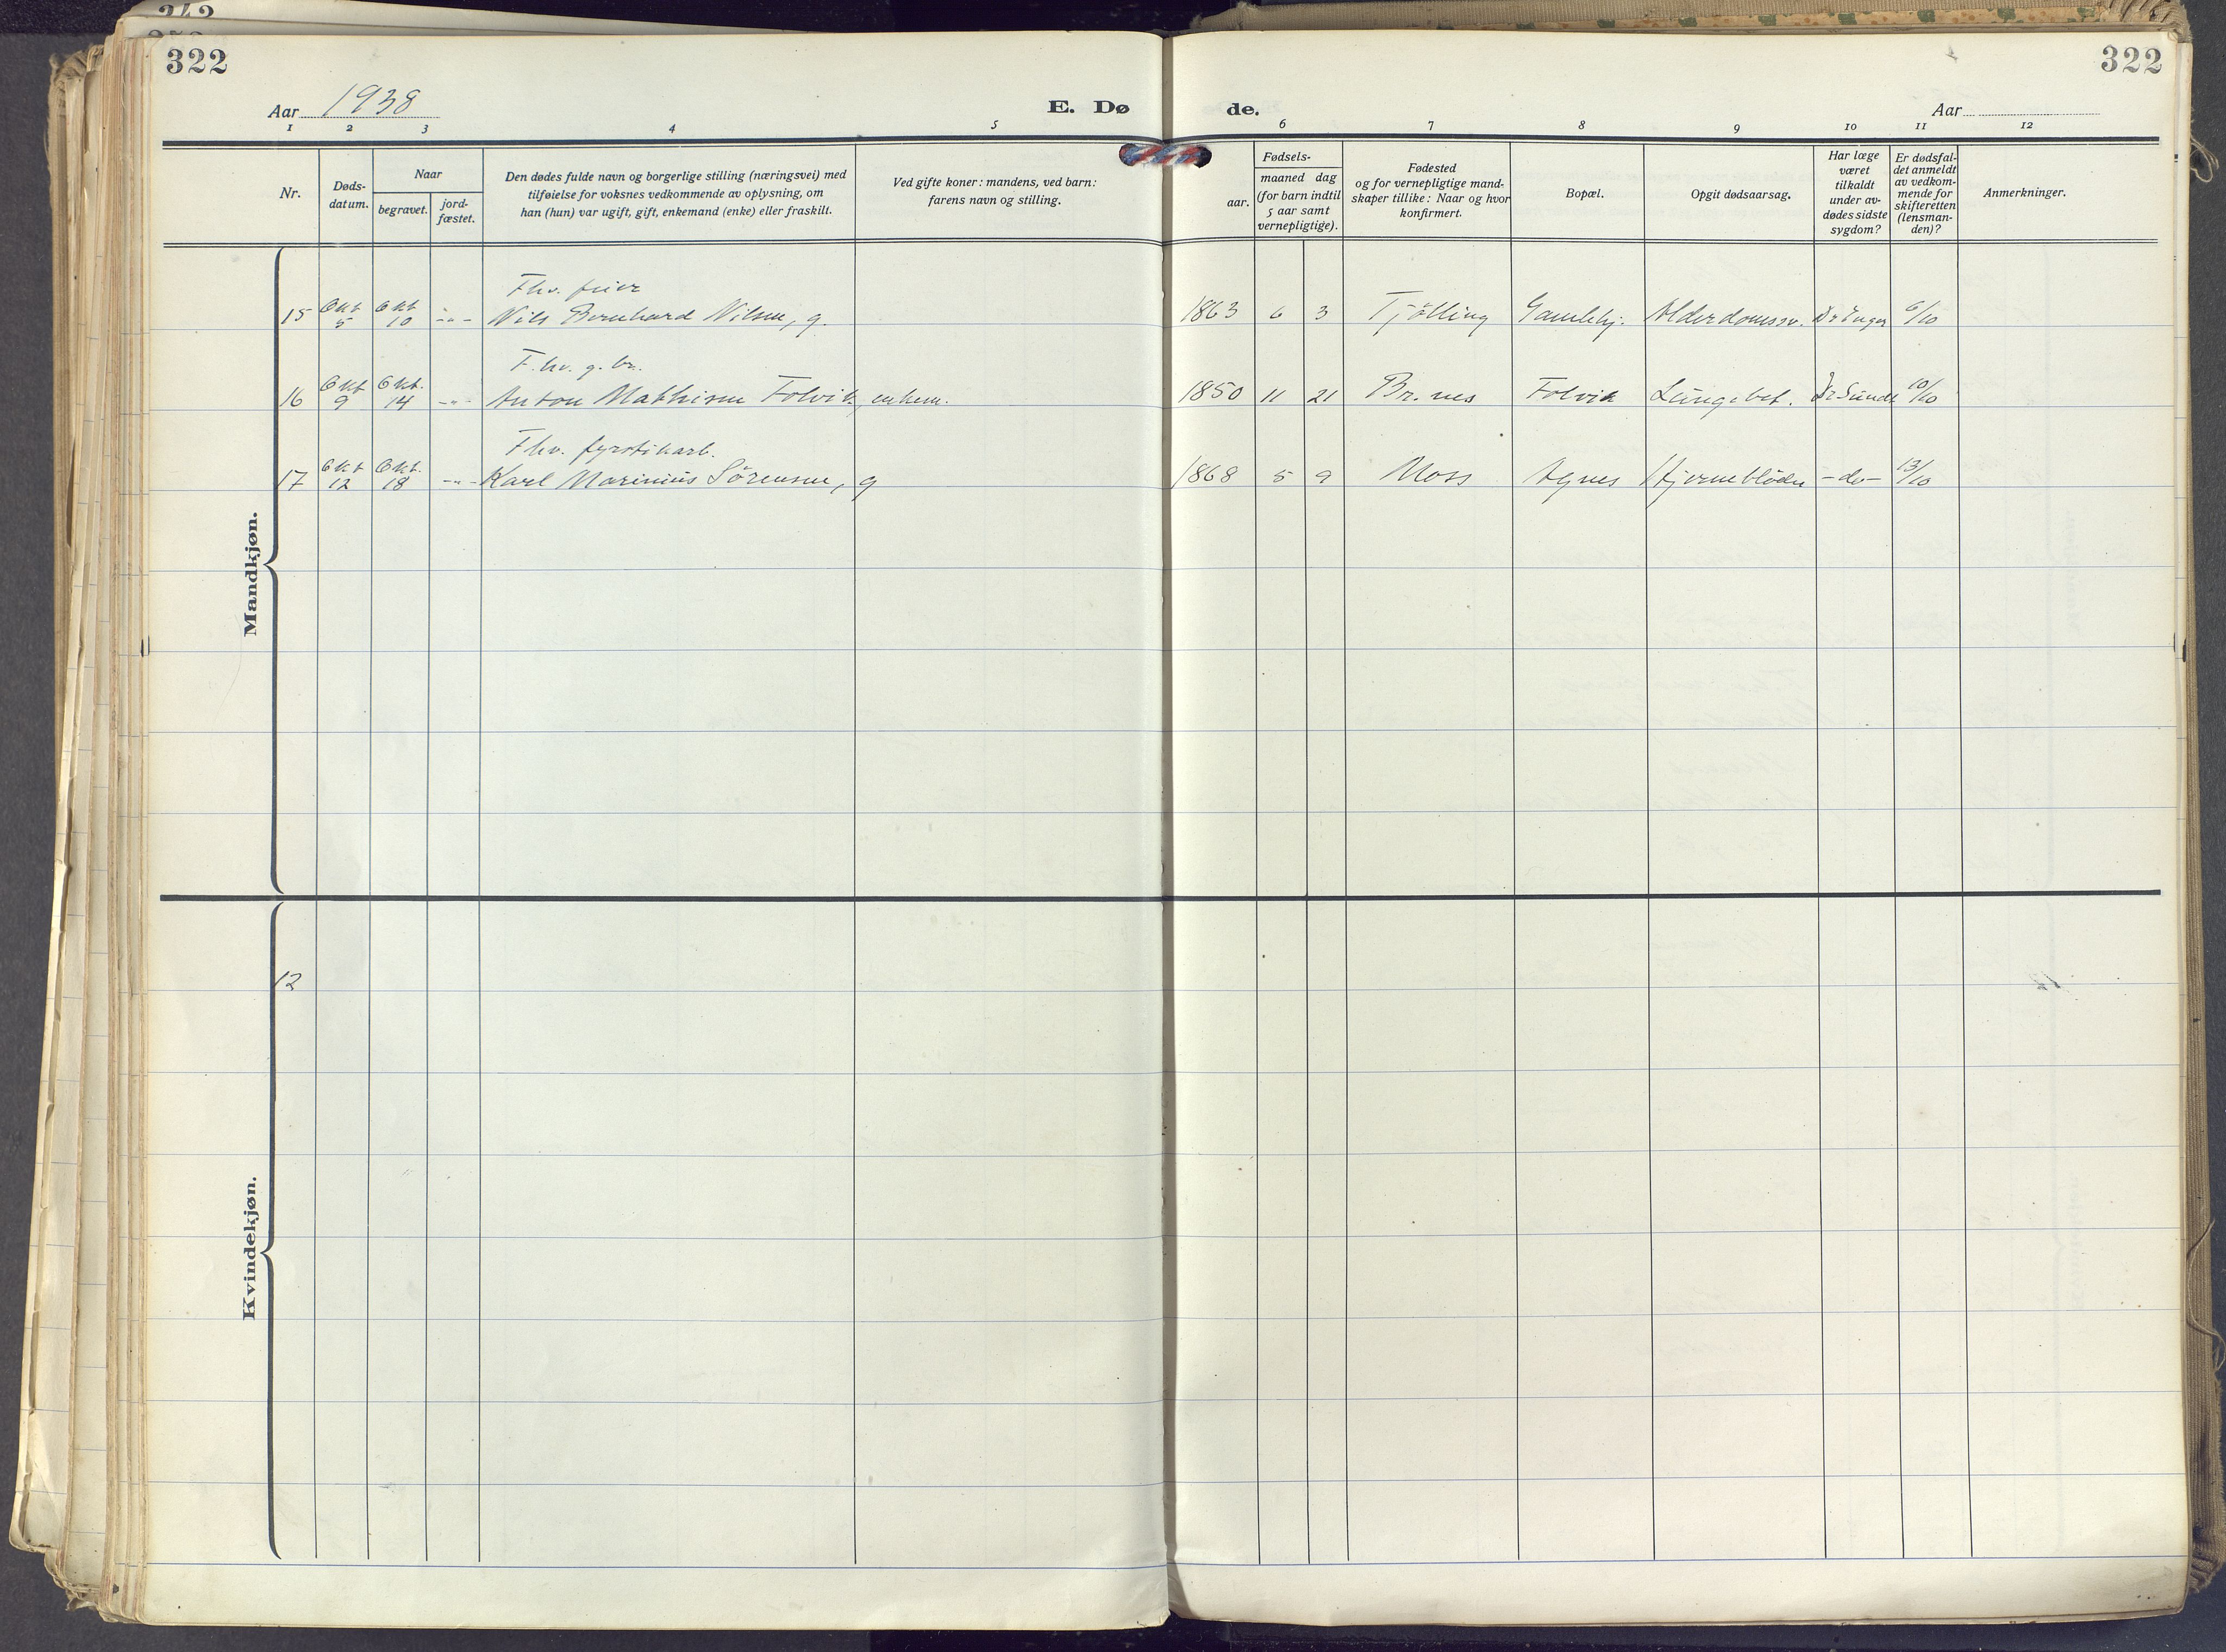 342
322
322
Aar 1938
E. Dø
de.
Aar
1 2 3 4 5 6 7 8 9 10 11 12
Nr.
Døds-
datum.
Naar
begravet.
jord-
fæstet.
Den dødes fulde navn og borgerlige stilling (næringsvei) med
tilføielse for voksnes vedkommende av oplysning, om
han (hun) var ugift, gift, enkemand (enke) eller fraskilt.
Ved gifte koner: mandens, ved barn:
farens navn og stilling.
aar.
Fødsels-
maaned dag
(for barn indtil
5 aar samt
vernepligtige).
Fødested
og for vernepligtige mand-
skaper tillike: Naar og hvor
konfirmert.
Bopæl.
Opgit dødsaarsag.
Har læge
været
tilkaldt
under av-
dødes sidste
sygdom?
Er dødsfal-
det anmeldt
av vedkom-
mende for
skifteretten
(lensman-
den)?
Anmerkninger.
Mandkjøn.
Fhv. feier
15 Okt 5 Okt 10 -"- Nils Bernhard Nilsen, g. 1863 6 3 Tjölling Gamlehj. Alderdomssv. 6/10
F.hv. g.br.
16 Okt 9 Okt. 14 -"- Anton Mathisen Folvik, enkem. 1850 11 21 Br.nes Folvik Lungebet. Dr Sunde 10/10
Fhv. fyrstikarb.
17 Okt 12 Okt. 18 -"- Karl Marinius Sörensen, g 1868 5 9 Moss Agnes Hjerneblödn -do- 13/10
Kvindekjøn.
12